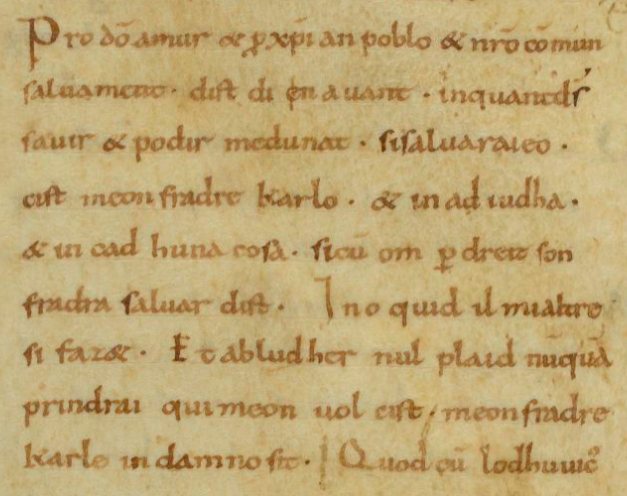 Pro dō amur & ꝑ xp̄ian poblo & nr̄o cōmun
saluament. dist di en auant. inquantd̄s
sauir & podir medunat. sisaluaraieo.
cist meon fradre karlo. & in ad iudha.
& in cad huna cosa. sicū om ꝑ dreit son
fradra saluar dist. Ino quid il mialtre
si faz&. Et abludher nul plaid nūquā
prindrai qui meon uol cist. meon fradre
karle in damno sit. Quod cū lodhuuic᷒